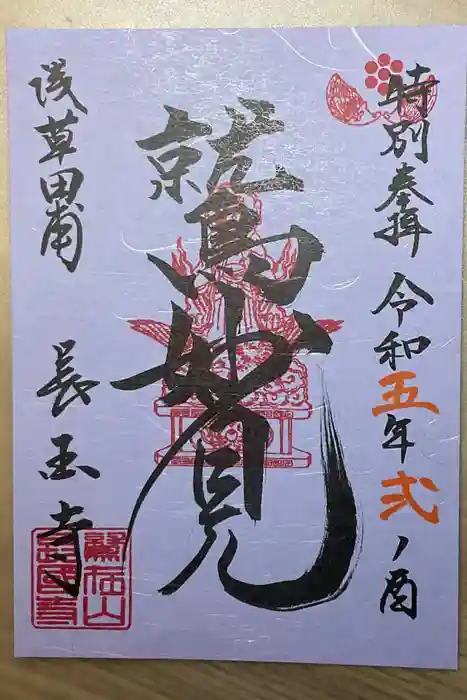 特別奉拝 令和五年 弐ノ酉
鷲妙見
浅草田甫 長国寺
鷲在山
長國寺